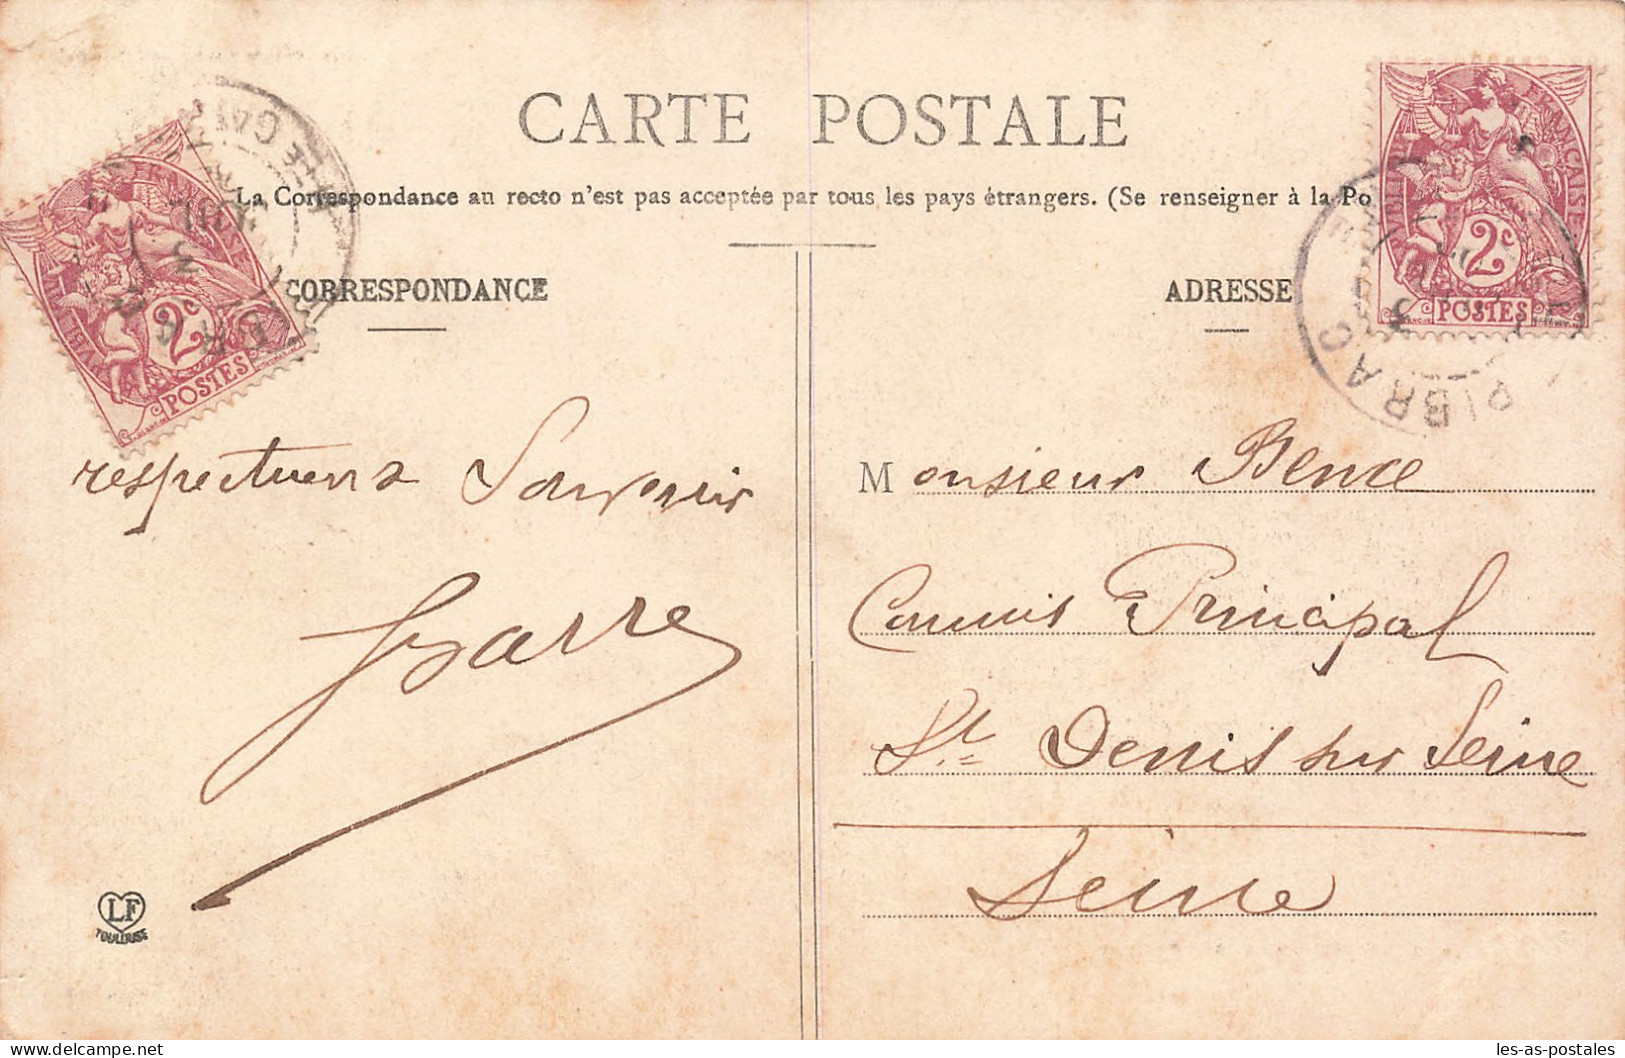 CARTE POSTALE
La Correspondance au recto n'est pas acceptée par tous les pays étrangers. (Se renseigner à la Po
CORRESPONDANCE
ADRESSE
FRANÇAISE
2c
POSTES
2c
POSTES
PIBRAC
respectueux Souvenir
Monsieur Bence
Commis Principal
St Denis sur Seine
Seine
LF
TOULOUSE
les-as-postales